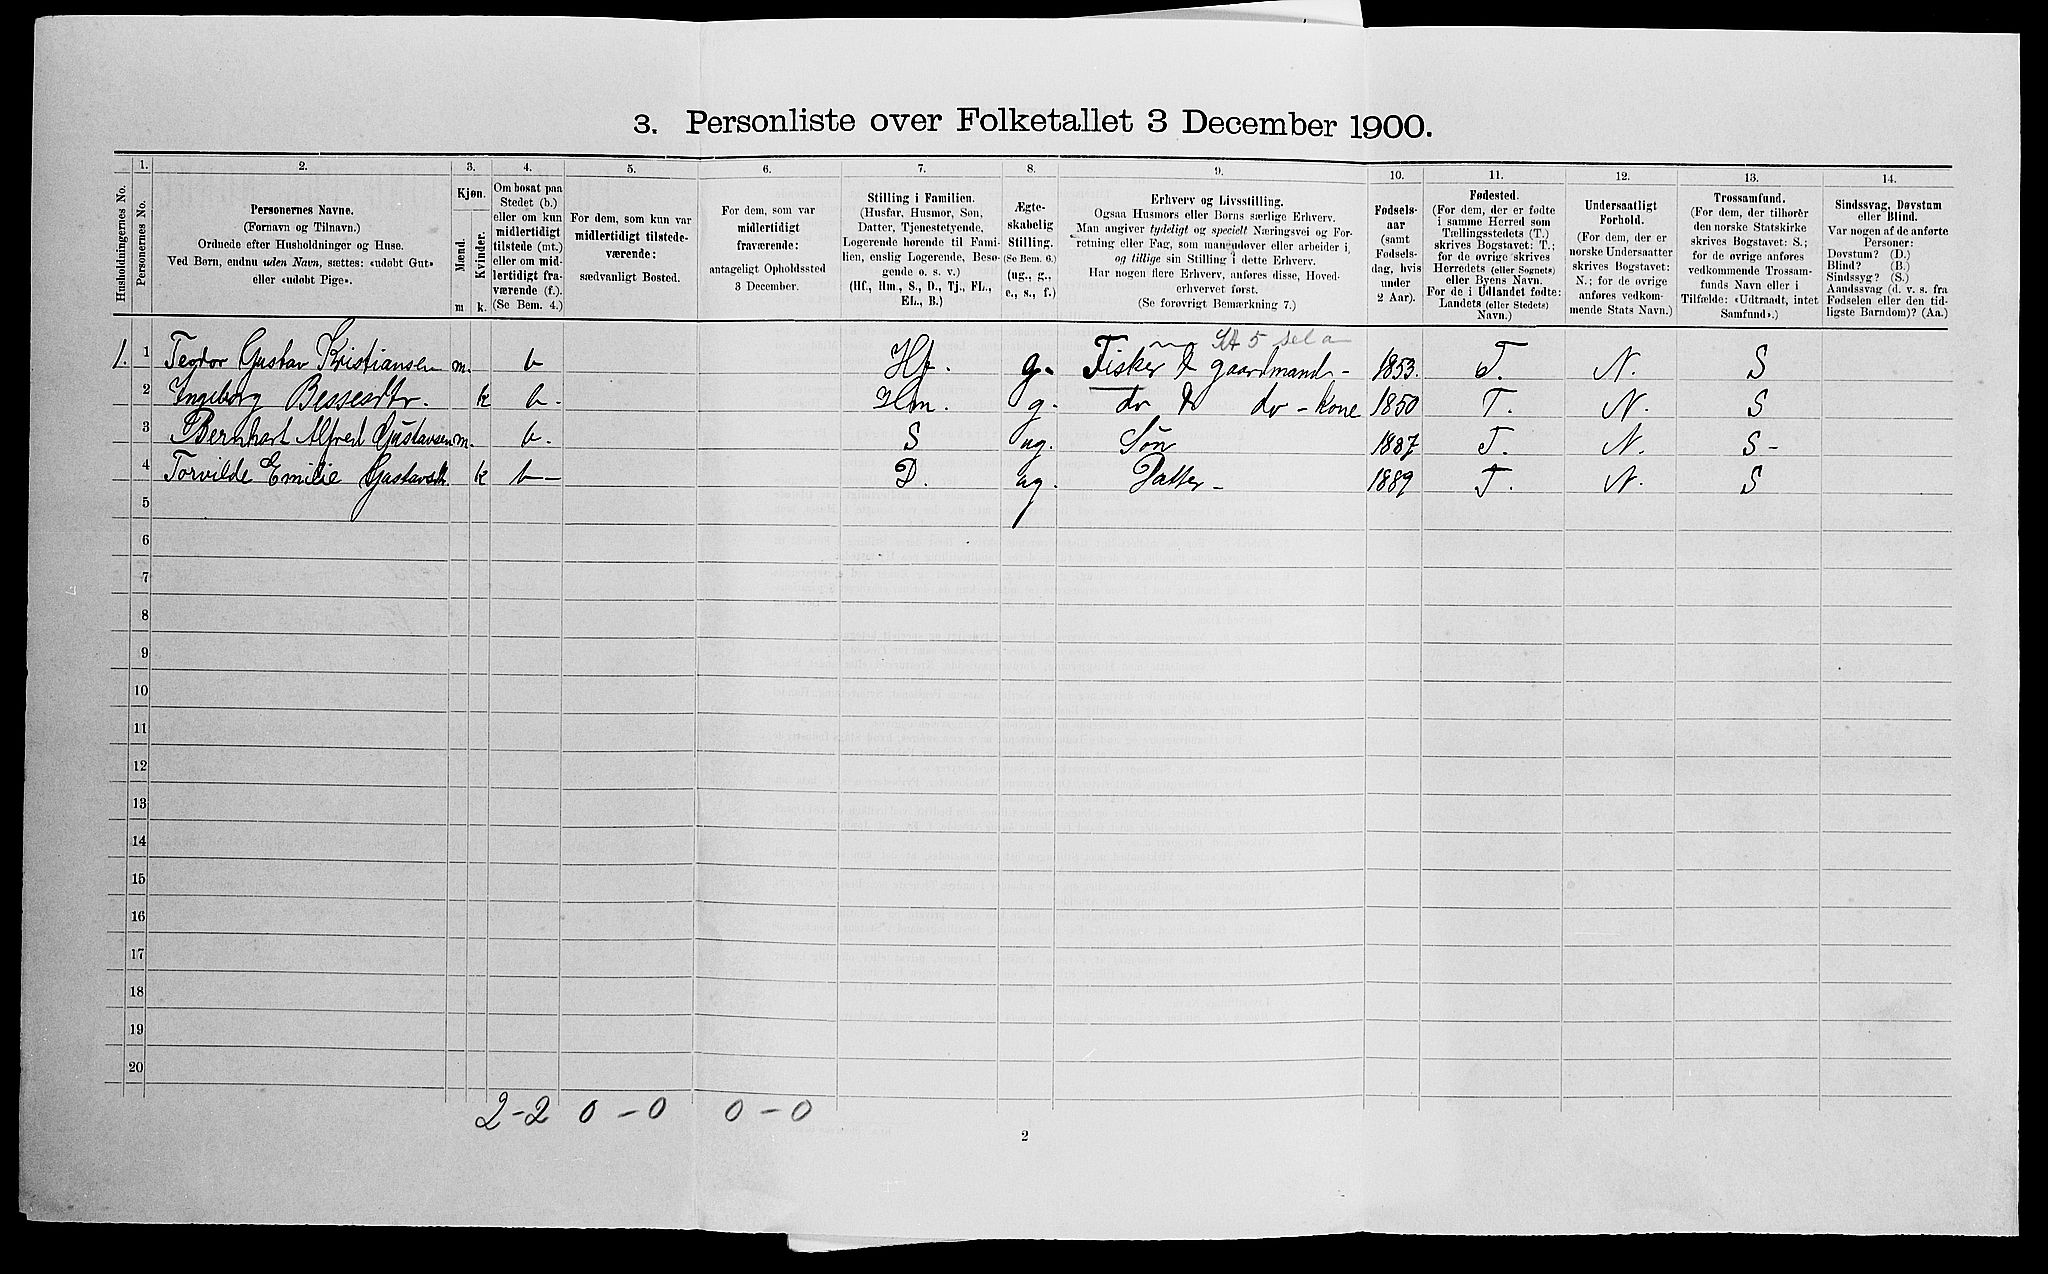 3. Personliste over Folketallet 3 December 1900.
1. 2. 3. 4. 5. 6. 7. 8. 9. 10. 11. 12. 13. 14.
Husholdningernes No.
Personernes No.
Personernes Navne.
(Fornavn og Tilnavn.)
Ordnede efter Husholdninger og Huse.
Ved Børn, endnu uden Navn, sættes: «udøbt Gut»
eller «udøbt Pige».
Kjøn.
Mænd.
Kvinder.
m k.
Om bosat paa
Stedet (b.)
eller om kun
midlertidigt
tilstede (mt.)
eller om mid-
lertidigt fra-
værende (f.)
(Se Bem. 4.)
For dem, som kun var
midlertidigt tilstede-
værende:
sædvanligt Bosted.
For dem, som var
midlertidigt
fraværende:
antageligt Opholdssted
3 December.
Stilling i Familien.
(Husfar, Husmor, Søn,
Datter, Tjenestetyende,
Logerende hørende til Fami-
lien, enslig Logerende, Besø-
gende o. s. v.)
(Hf., Hm., S., D., Tj., FL.,
EL., B.)
Ægte-
skabelig
Stilling.
(Se Bem. 6.)
(ug., g.,
e., s., f.)
Erhverv og Livsstilling.
Ogsaa Husmors eller Børns særlige Erhverv.
Man angiver tydeligt og specielt Næringsvei og For-
retning eller Fag, som man udøver eller arbeider i,
og tillige sin Stilling i dette Erhverv.
Har nogen flere Erhverv, anføres disse, Hoved-
erhvervet først.
(Se forøvrigt Bemærkning 7.)
Fødsels-
aar
(samt
Fødsels-
dag, hvis
under
2 Aar).
Fødested.
(For dem, der er fødte
i samme Herred som
Tællingsstedets (T.)
skrives Bogstavet: T.;
for de øvrige skrives
Herredets (eller Sognets)
eller Byens Navn.
For de i Udlandet fødte:
Landets (eller Stedets)
Navn.)
Undersaatligt
Forhold.
(For dem, der er
norske Undersaatter
skrives Bogstavet:
N.; for de øvrige
anføres vedkom-
mende Stats Navn.)
Trossamfund.
(For dem, der tilhører
den norske Statskirke
skrives Bogstavet: S.;
for de øvrige anføres
vedkommende Trossam-
funds Navn eller i
Tilfælde: «Udtraadt, intet
Samfund».)
Sindssvag, Døvstum
eller Blind.
Var nogen af de anførte
Personer:
Døvstum? (D.)
Blind? (B.)
Sindssyg? (S.)
Aandssvag (d. v. s. fra
Fødselen eller den tid-
ligste Barndom)? (Aa.)
1. 1 Teodor Gustav Kristiansen m. b Hf. g. Fisker & gaardmand - 1853. T. N. S
2 Ingeborg Bessesdtr. k b. Hm. g. do & do - kone 1850 T. N. S
3 Bernhart Alfred Gustavsen m. b. S ug. Søn 1887 T. N. S -
4 Torvilde Emilie Gustavsdtr. k b - D. ug. Datter - 1889 T. N. S
5
6
7
8
9
10
11
12
13
14
15
16
17
18
19
20
2 - 2 0 - 0 0 - 0
2